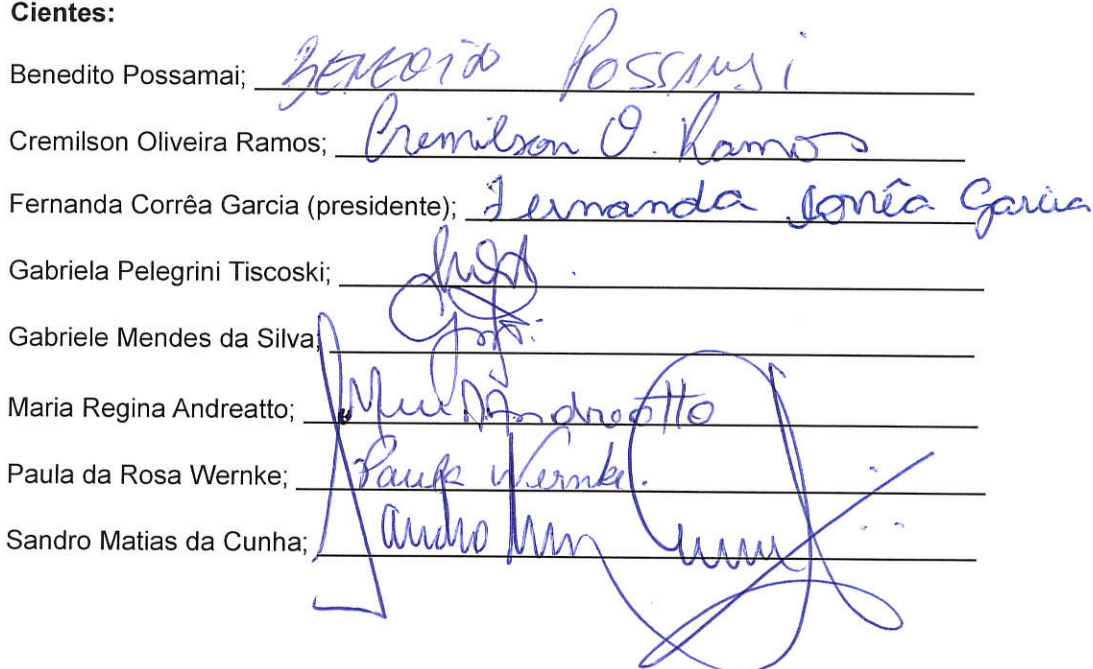 Cientes:
Benedito Possamai; BENEDITO POSSAMAI
Cremilson Oliveira Ramos; Cremilson O. Ramos
Fernanda Corrêa Garcia (presidente); Fernanda Corrêa Garcia
Gabriela Pelegrini Tiscoski;
Gabriele Mendes da Silva;
Maria Regina Andreatto; Andreatto
Paula da Rosa Wernke; Paula Wernke.
Sandro Matias da Cunha; Sandro